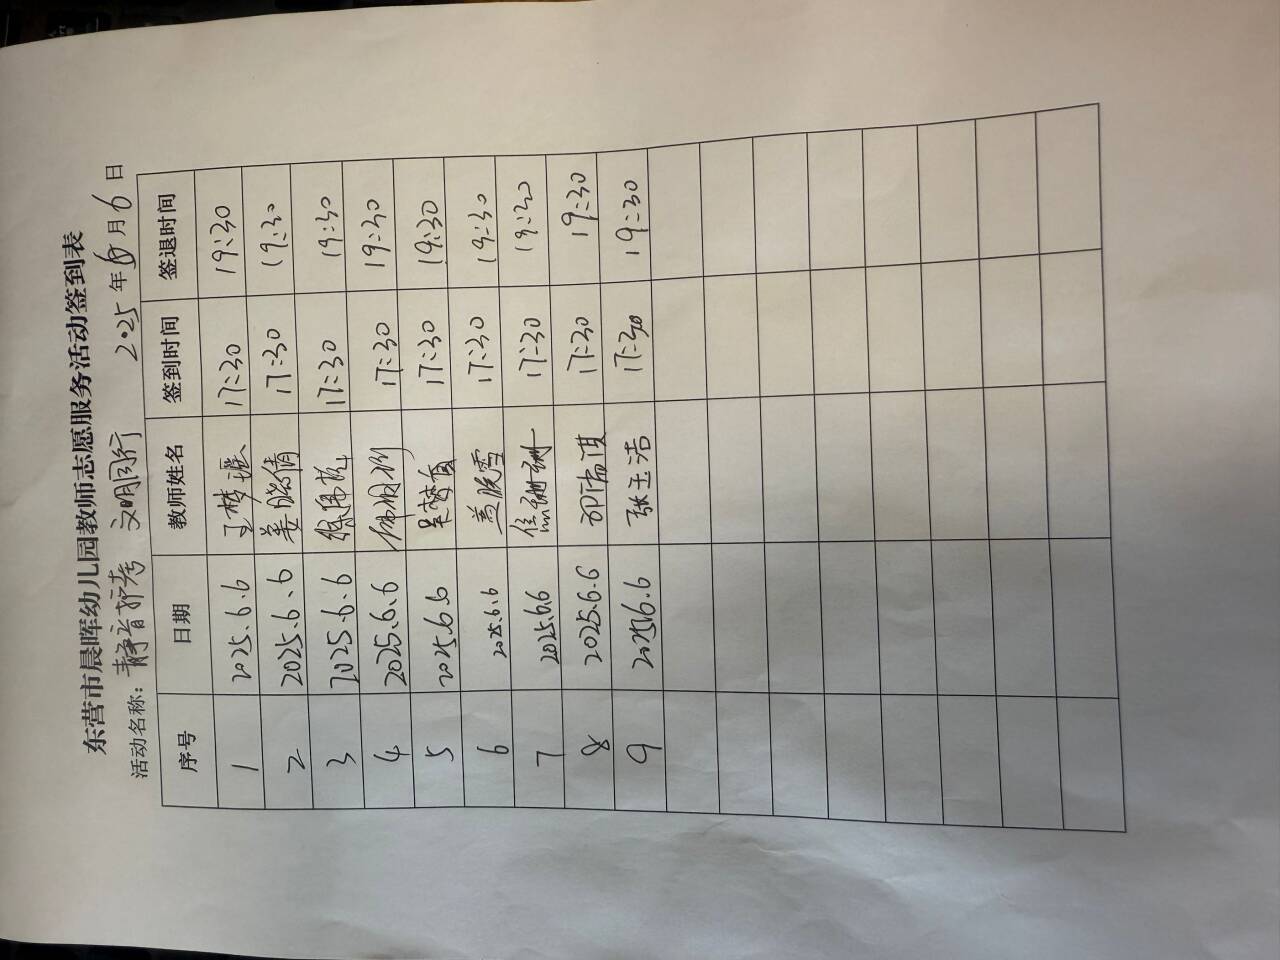 东营市晨晖幼儿园教师志愿服务活动签到表
活动名称：静音护考 文明同行 2025年6月6日
序号 日期 教师姓名 签到时间 签退时间
1 2025.6.6 王梦瑶 17:30 19:30
2 2025.6.6 姜晓倩 17:30 19:30
3 2025.6.6 17:30 19:30
4 2025.6.6 17:30 19:30
5 2025.6.6 17:30 19:30
6 2025.6.6 盖晓雪 17:30 19:30
7 2025.6.6 任珊珊 17:30 19:30
8 2025.6.6 17:30 19:30
9 2025.6.6 张玉洁 17:30 19:30